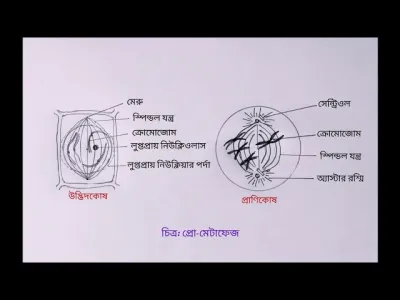 মেরু
স্পিন্ডল যন্ত্র
ক্রোমোজোম
লুপ্তপ্রায় নিউক্লিওলাস
লুপ্তপ্রায় নিউক্লিয়ার পর্দা
উদ্ভিদকোষ
সেন্ট্রিওল
ক্রোমোজোম
স্পিন্ডল যন্ত্র
অ্যাস্টার রশ্মি
প্রাণিকোষ
চিত্র: প্রো-মেটাফেজ